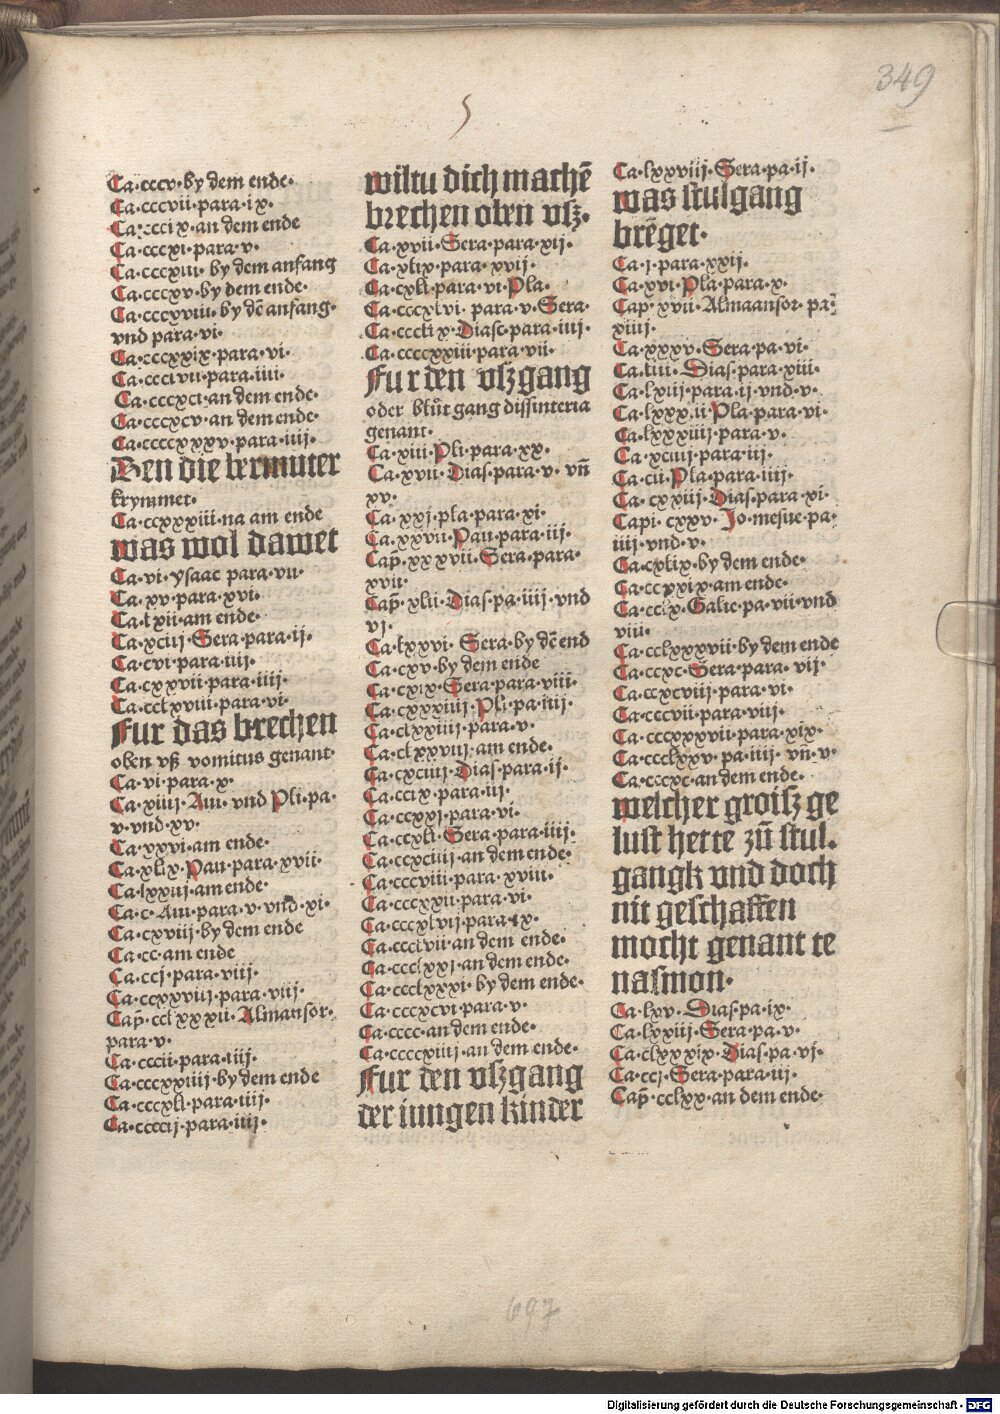 349
Ca·cccv·by dem ende·
Ca·cccvii·para·ix·
Ca·cccix·an dem ende
Ca·cccxi·para·v·
Ca·cccxiii·by dem anfang
Ca·cccxv·by dem ende·
Ca·cccxviii·by dē anfang·
vnd para·vi·
Ca·cccxxix·para·vi·
Ca·ccclvii·para·iiii·
Ca·cccxci·an dem ende·
Ca·cccxcv·an dem ende·
Ca·ccccxxxv·para·iiij·
Den die bermuter
krymmet·
Ca·ccxxxiii·na am ende
was wol dawet
Ca·vi·ysaac para·vii·
Ca·xv·para·xvi·
Ca·lxii·am ende·
Ca·xciij·Sera·para·ij·
Ca·cvi·para·iiij·
Ca·cxxvii·para·iiij·
Ca·cclxviii·para·vi·
Fur das brechen
oben vß vomitus genant·
Ca·vi·para·x·
Ca·xiiij·Aui·vnd Pli·pa·
v·vnd·xv·
Ca·xxvi·am ende·
Ca·xlix·Pau·para·xvii·
Ca·lxxiij·am ende·
Ca·c·Aui·para·v·vnd·xi·
Ca·cxviij·by dem ende
Ca·cc·am ende
Ca·ccj·para·viij·
Ca·ccxxviij·para·viij·
Cap̄·cclxxxii·Almansor·
para·v·
Ca·cccii·para·iiij·
Ca·cccxxiiij·by dem ende
Ca·cccxli·para·iiij·
Ca·ccccij·para·iiij·
wiltu dich machē
brechen oben vsz·
Ca·xvii·Sera·para·xij·
Ca·xlix·para·xvij·
Ca·cxli·para·vi·Pla·
Ca·cccxlvi·para·v·Sera·
Ca·ccclix·Diasc·para·iiij·
Ca·ccccxxiii·para·vii·
Fur den vszgang
oder blůt gang dissinteria
genant·
Ca·xiii·Pli·para·xx·
Ca·xvii·Dias·para·v·vn̄
xv·
Ca·xxj·pla·para·xi·
Ca·xxvii·Pau·para·iij·
Cap̄·xxxvii·Sera·para·
xvii·
Cap̄·xlii·Dias·pa·iiij·vnd
vj·
Ca·lxxvi·Sera·by dē end
Ca·cxv·by dem ende
Ca·cxix·Sera·para·viii·
Ca·cxxxiiij·Pli·pa·iiij·
Ca·clxxiiij·para·v·
Ca·clxxviij·am ende·
Ca·cxciiij·Dias·para·ij·
Ca·ccix·para·iij·
Ca·ccxxj·para·vi·
Ca·ccxli·Sera·para·iiij·
Ca·ccxciij·an dem ende·
Ca·cccviii·para·xviii·
Ca·cccxxii·para·vi·
Ca·cccxlvij·para·ix·
Ca·ccclvii·an dem ende·
Ca·ccclxxj·an dem ende·
Ca·ccclxxxi·by dem ende·
Ca·cccxcvi·para·v·
Ca·cccc·an dem ende·
Ca·ccccxiiij·an dem ende·
Fur den vszgang
der iungen kinder
Ca·lxxviij·Sera·pa·ij·
was stulgang
brēget·
Ca·j·para·xxij·
Ca·xvi·Pla·para·x·
Cap·xvii·Almaansor·pa·
xiiij·
Ca·xxxv·Sera·pa·vi·
Ca·liii·Dias·para·xiii·
Ca·lxiij·para·ij·vnd·v·
Ca·lxxxii·Pla·para·vi·
Ca·lxxxiiij·para·v·
Ca·xciiij·para·iij·
Ca·cii·Pla·para·iiij·
Ca·cxxiij·Dias·para·xi·
Capi·cxxv·Jo·mesue·pa·
iiij·vnd·v·
Ca·cxlix·by dem ende·
Ca·ccxxix·am ende·
Ca·cclx·Galie·pa·vii·vnd
viii·
Ca·cclxxxvii·by dem ende
Ca·ccxc·Sera·para·vij·
Ca·ccxcviij·para·vi·
Ca·cccvii·para·viij·
Ca·cccxxxvii·para·xix·
Ca·ccclxxv·pa·iiij·vn̄·v·
Ca·cccxc·an dem ende·
welcher groisz ge
lust hette zů stul·
gangk vnd doch
nit geschaffen
mocht genant te
nasmon·
Ca·lxv·Dias·pa·ix·
Ca·lxxiij·Sera·pa·v·
Ca·clxxxix·Dias·pa·vj·
Ca·ccj·Sera·para·iij·
Cap̄·cclxx·an dem ende·
697
Digitalisierung gefördert durch die Deutsche Forschungsgemeinschaft - DFG